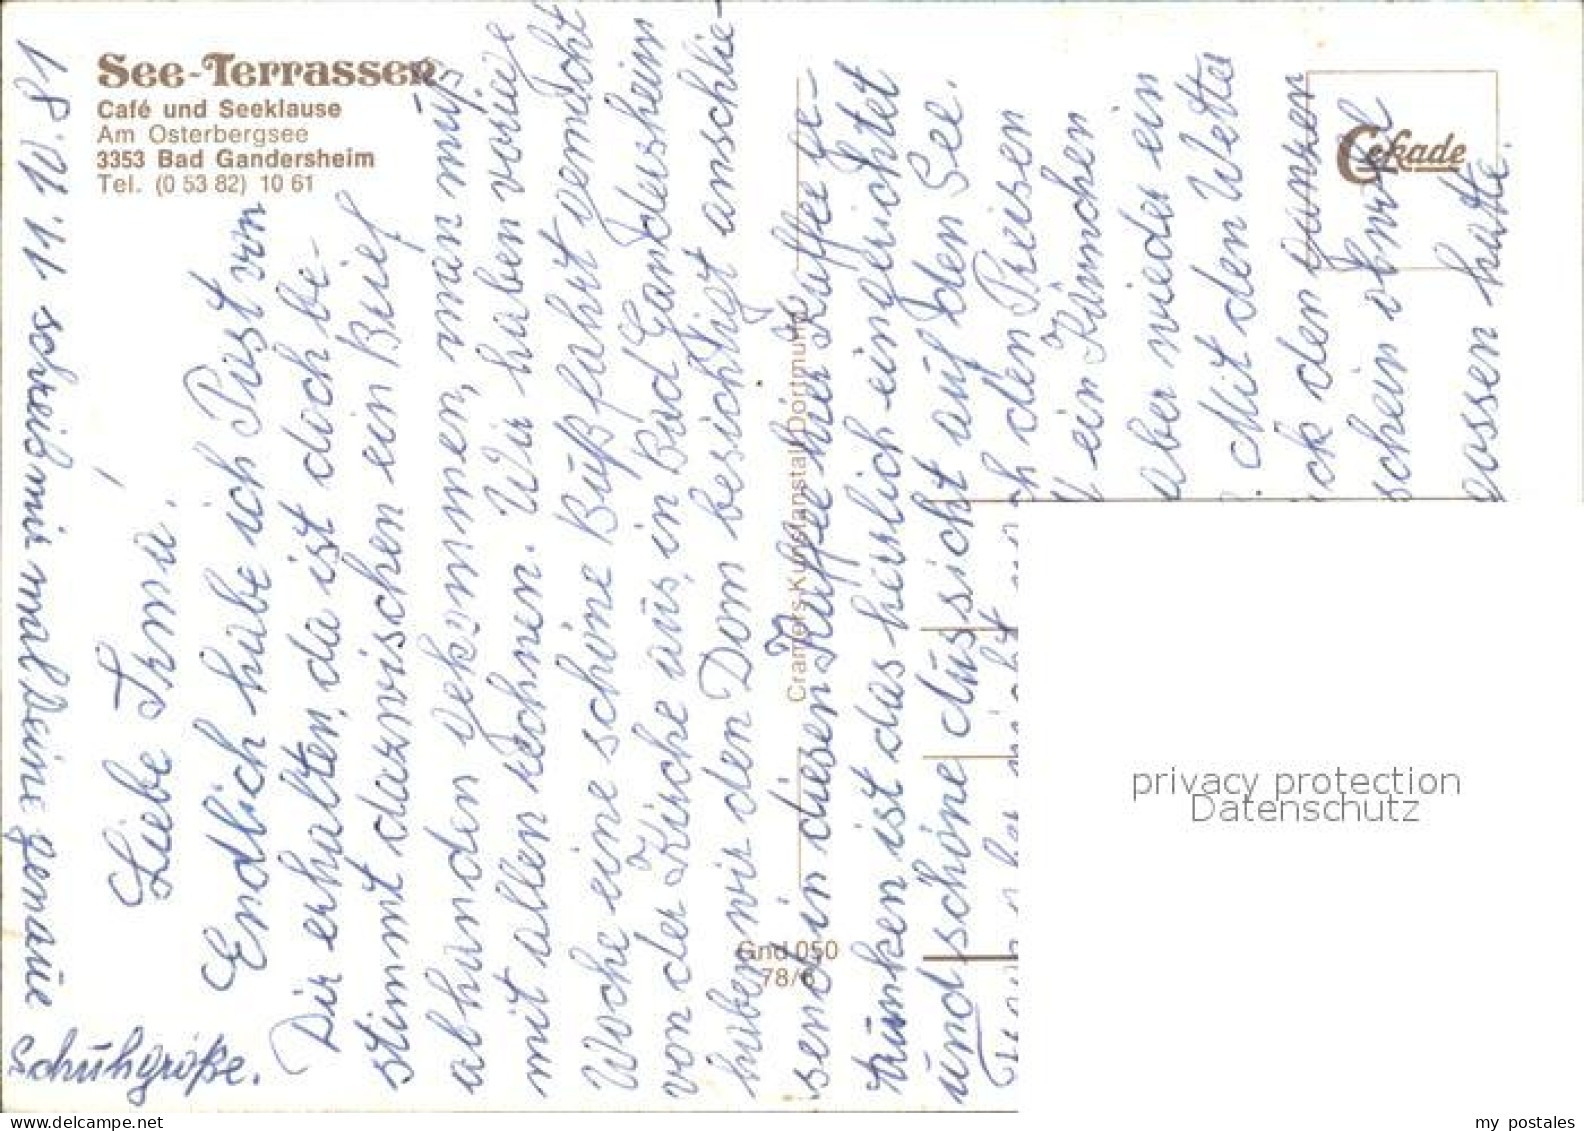 See-Terrassen
Café und Seeklause
Am Osterbergsee
3353 Bad Gandersheim
Tel. (0 53 82) 10 61
Cekade
Cramers Kunstanstalt Dortmund
Gnd 050
78/6
11.11.81
Liebe Irma!
Endlich habe ich Post von
Dir erhalten, da ist doch be-
stimmt dazwischen ein Brief
abhanden gekommen, man muß
mit allen rechnen. Wir haben vorige
Woche eine schöne Bußfahrt gemacht
von der Kirche aus, in Bad Gandersheim
haben wir den Dom besichtigt anschlie-
send in diesen Kaffee hier Kaffee ge-
trunken ist das herrlich eingerichtet
und schöne Aussicht auf den See.
den Preisen
ein Kännchen
aber wieder ein
Mit den Wetter
ck den ganzen
schein ohne
gossen hatte.
schreib mir mal Deine genaue
Schuhgröße.
privacy protection
Datenschutz
my postales